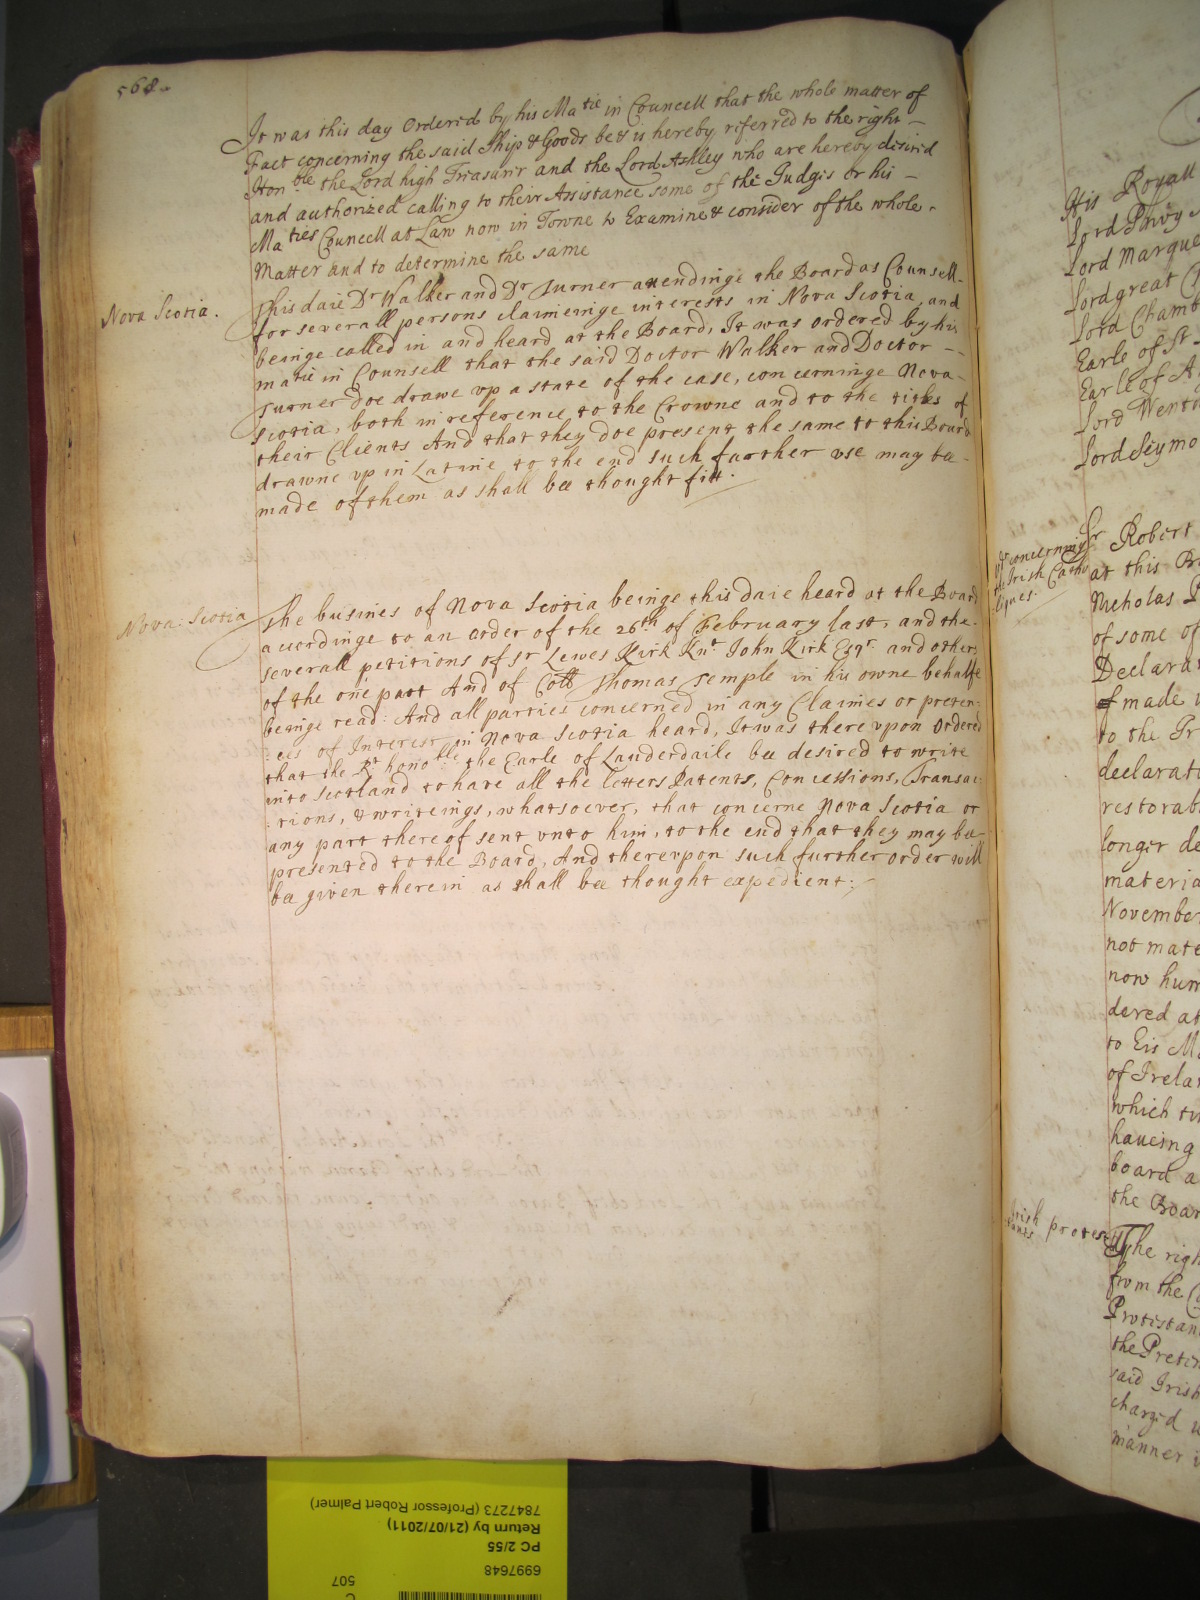 568
It was this day Ordered by his Ma tie in Councell that the whole matter of
Fact concerning the said Ship & Goods be & is hereby referred to the right
Hon ble the Lord high Treasurer and the Lord Ashley who are hereby desired
and authorized calling to their Assistance some of the Judges or his
Ma ties Councell at Law now in Towne to Examine & consider of the whole
Matter and to determine the same
Nova Scotia.
This daie Dr Walker and Dr Turner attendinge the Board as Counsell
for severall persons claimeinge interests in Nova Scotia, and
beinge called in and heard at the Board, It was ordered by his
matie in Counsell that the said Doctor Walker and Doctor
Turner doe drawe vp a state of the case, concerninge Nova
Scotia, both in reference to the Crowne and to the titles of
their Clients And that they doe present the same to this Board
drawne vp in Latine to the end such further vse may be
made of them as shall bee thought fitt.
Nova: Scotia
The busines of Nova Scotia beinge this daie heard at the Board
accordinge to an order of the 26th of February last, and the
severall petitions of Sr Lewes Kirk Knt John Kirk Esqr and others
of the one part And of Coll Thomas Temple in his owne behalfe
beinge read: And all parties concerned in any Claimes or preten:
:ces of Interest in Nova Scotia heard, It was there vpon Ordered
that the Rt hono ble the Earle of Lauderdaile bee desired to write
into Scotland to have all the letters Patents, Concessions, Transac:
:tions, & writeings, whatsoever, that concerne Nova Scotia or
any part there of sent vnto him, to the end that they may bee
presented to the Board, And therevpon such further order will
be given therein as shall bee thought expedient:
His Royall
Lord Privy
Lord Marque
Lord great
Lord Chamb
Earle of St
Earle of
Lord Went
Lord Seymo
concerning
the Irish Catho
liques
Sr Robert
at this
Nicholas
of some of
Declara
if made
to the
declarati
restorab
longer de
materia
November
not mate
now hum
dered at
to His Ma
of Irelan
which
haueing
board a
the Boar
Irish protes
tants
The righ
from the
Protistan
the Preten
said Irish
charged
manner
C
507
6997648
PC 2/55
Return by (21/07/2011)
7847273 (Professor Robert Palmer)